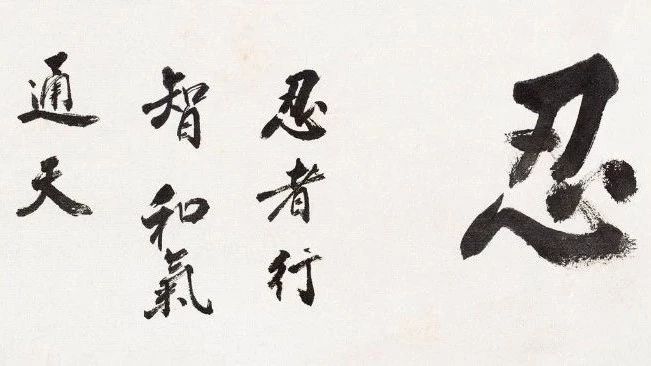 忍
忍者行
智和氣
通天